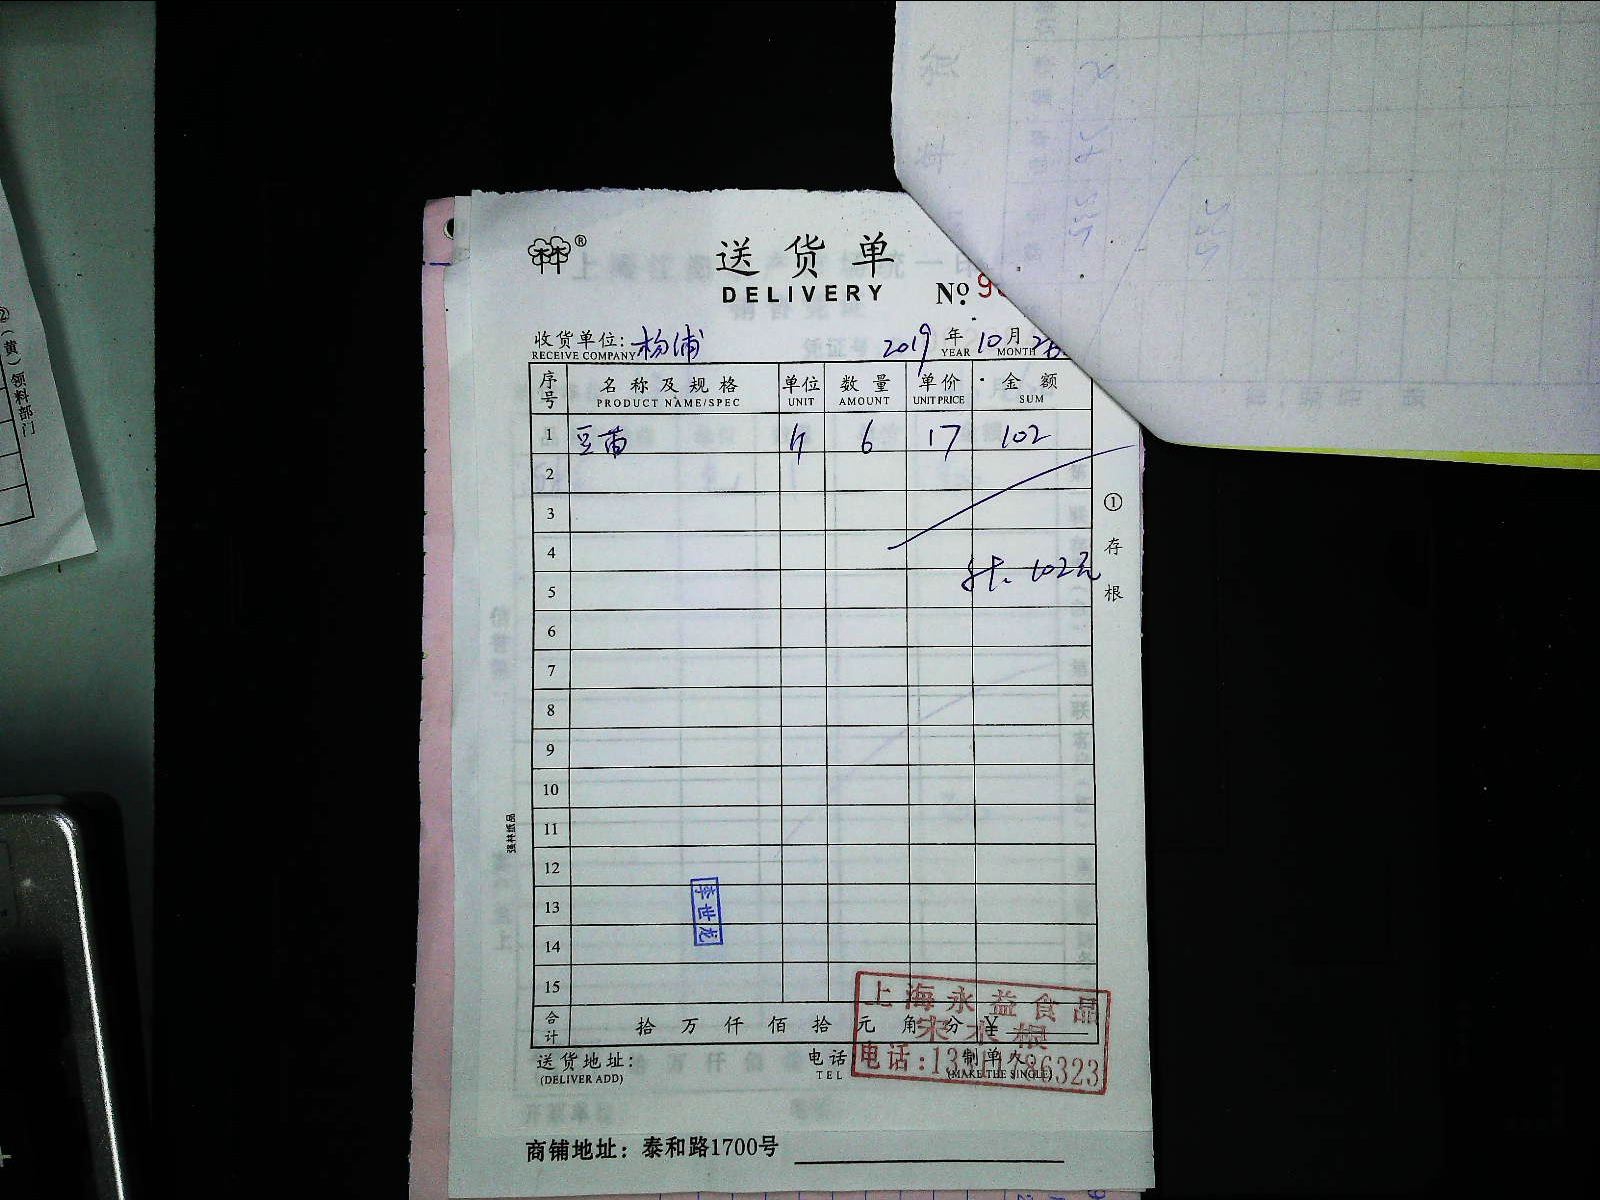 ②(黄)领料部门
林®
送货单
DELIVERY
No. 9
收货单位: 杨浦 2019年10月26
RECEIVE COMPANY YEAR MONTH
序号 名称及规格 单位 数量 单价 金额
PRODUCT NAME/SPEC UNIT AMOUNT UNIT PRICE SUM
1 豆苗 斤 6 17 102
2
3
4
5
计. 102元
6
7
8
9
10
11
12
13
14
15
①存根
强林纸品
李世龙
合计 拾万仟佰拾元角分 ¥
上海永益食品
宋木根
电话:13311786323
送货地址: 电话 制单人:
(DELIVER ADD) TEL (MAKE THE SINGLE)
商铺地址:泰和路1700号